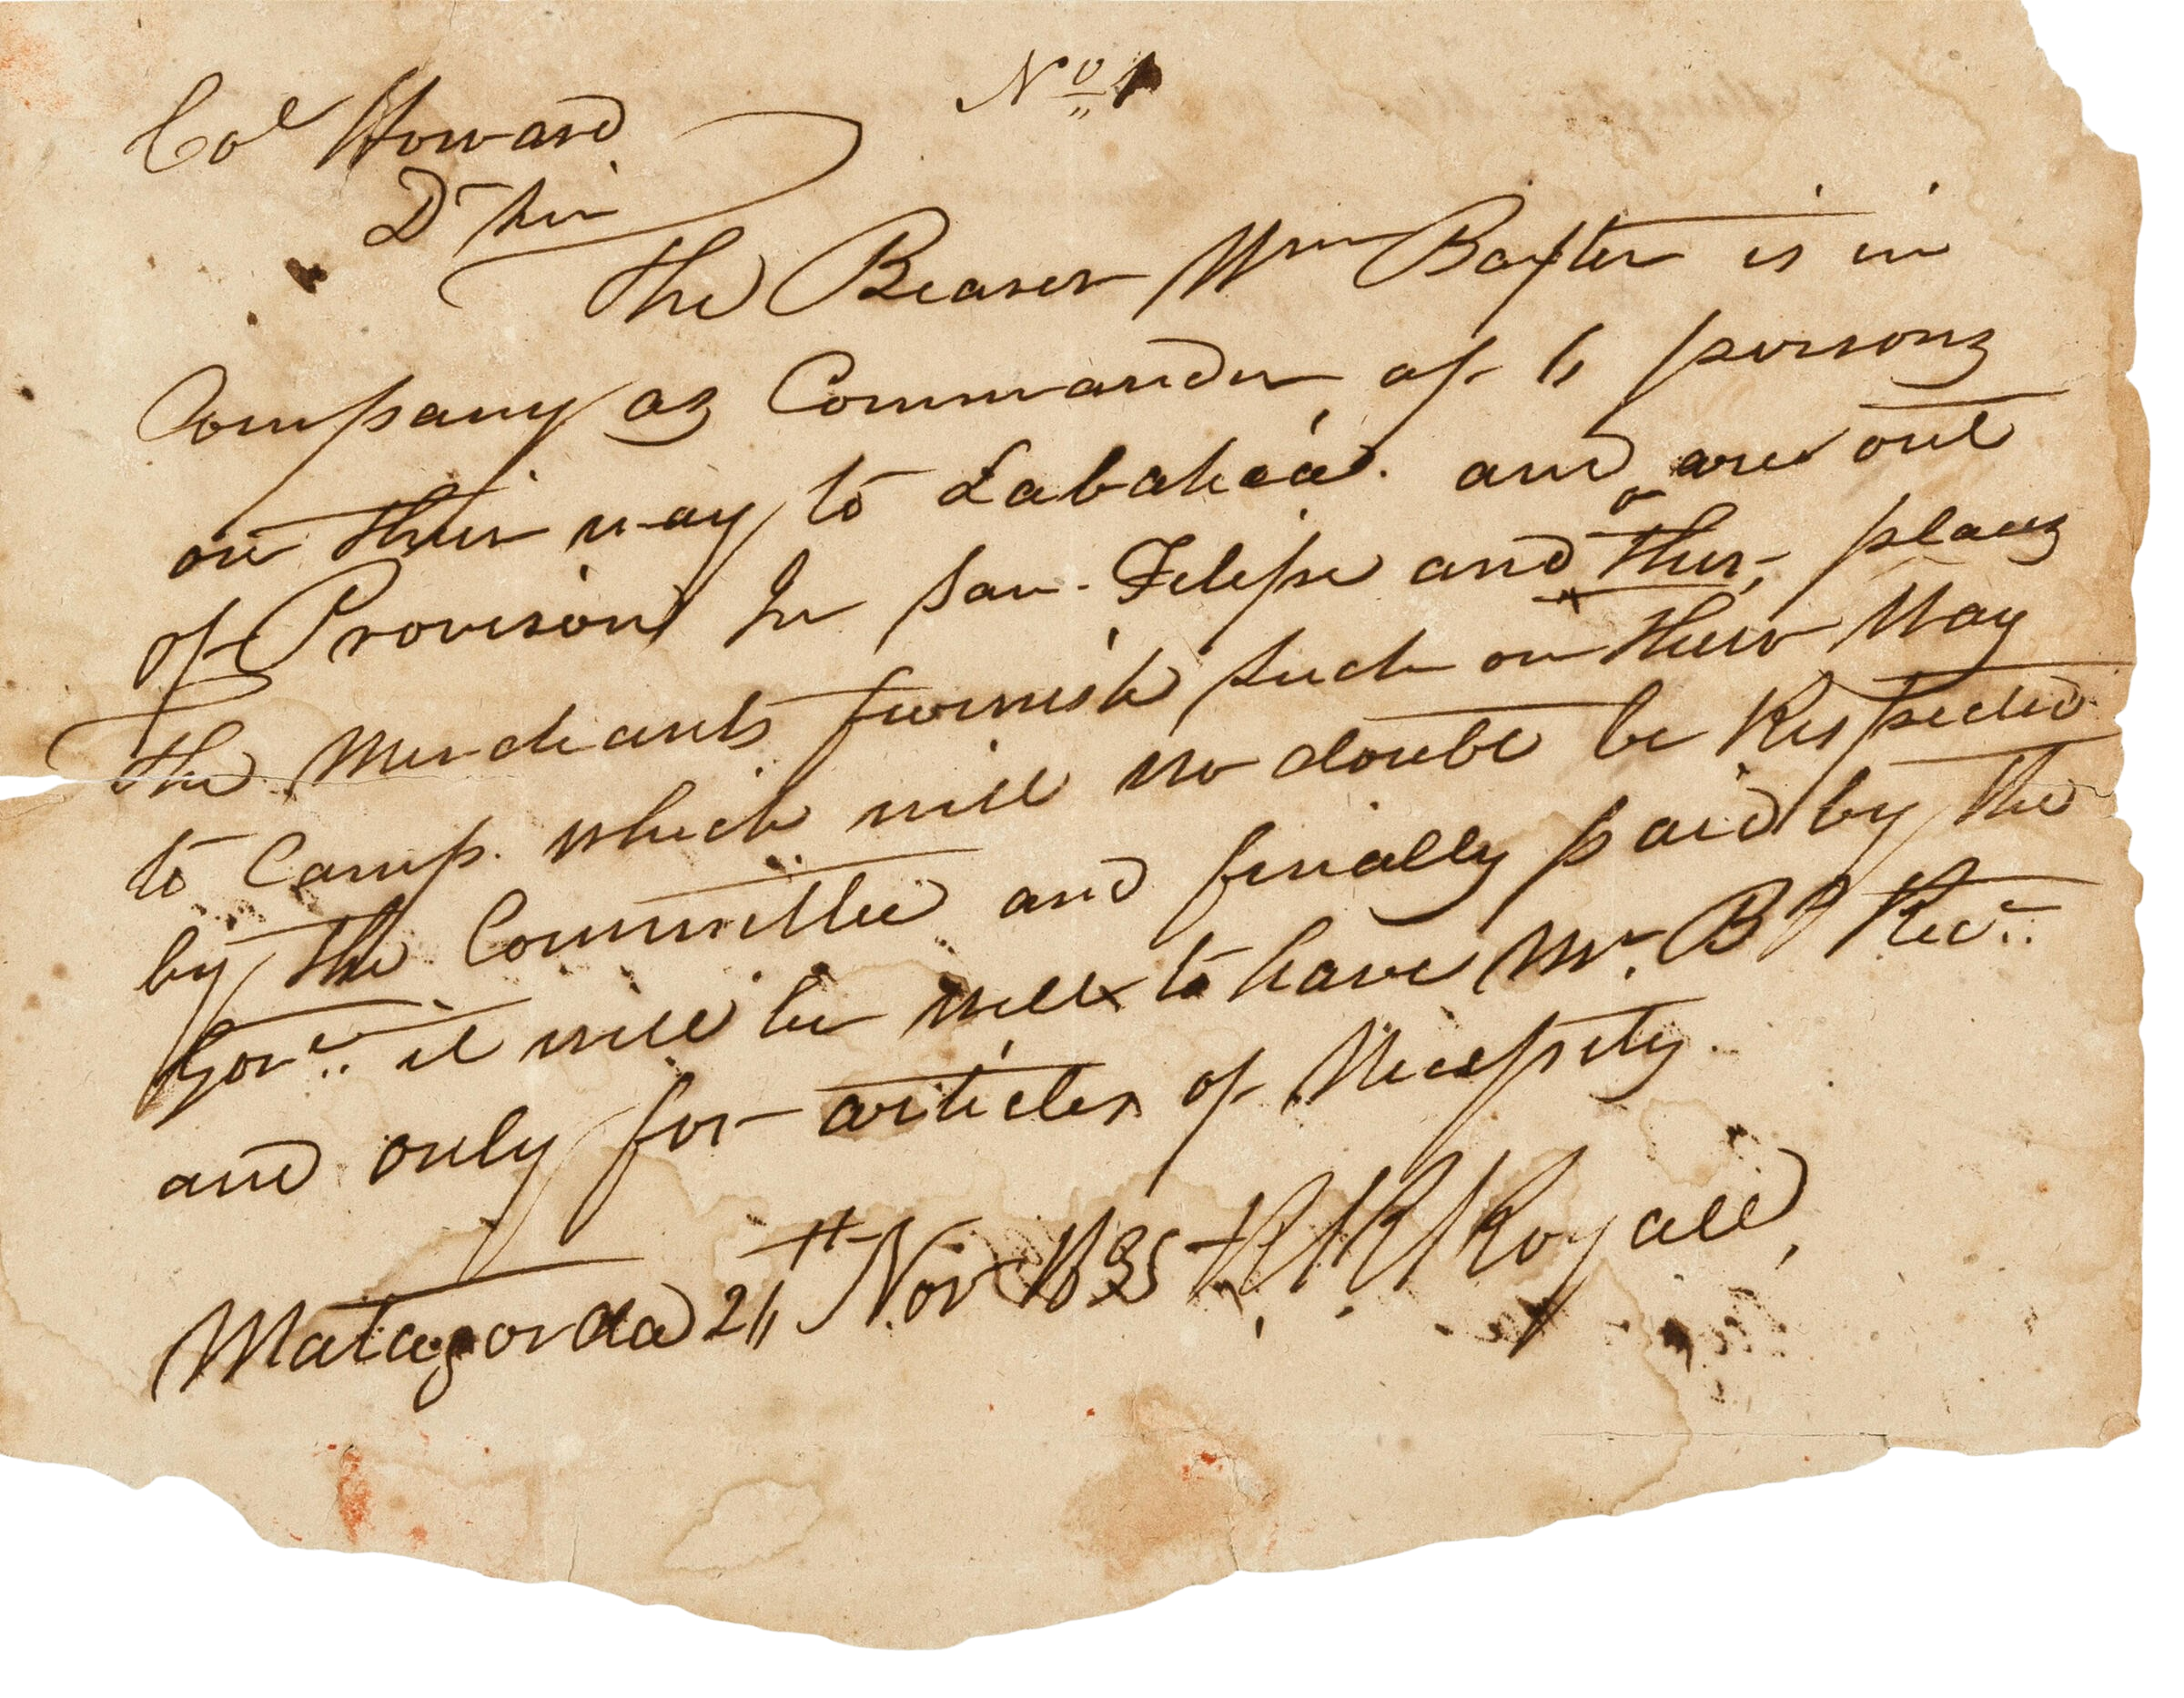 No 1
Col Howard
Dr Sir
The Bearer Wm Baxter is in
Company as Commander of 6 persons
on their way to Labahaa. and are out
of Provision In San Felipe and other places
the Merchants furnish such on their Way
to Camp. which will no doubt be Respected
by the Committee and finally paid by the
Govt. it will be well to have Mr. Bs Rect.
and only for articles of Necessity.
Matagorda 26th Nov 1835 R. R. Royall,